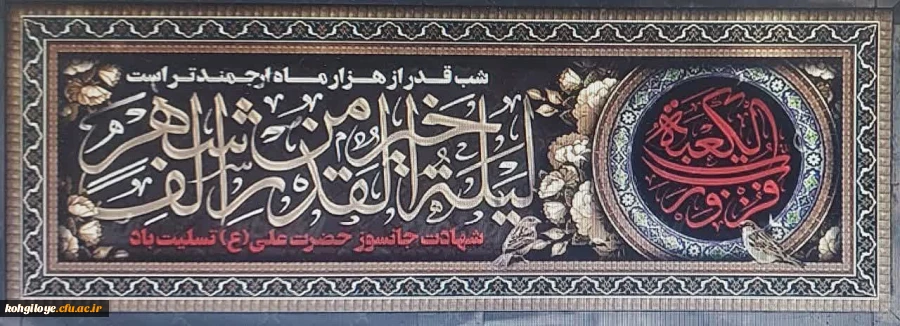 شب قدر از هزار ماه ارجمندتر است
لیلة القدر خیر من الف شهر
شهادت جانسوز حضرت علی (ع) تسلیت باد
فزت و رب الکعبة
kohgiloye.cfu.ac.ir